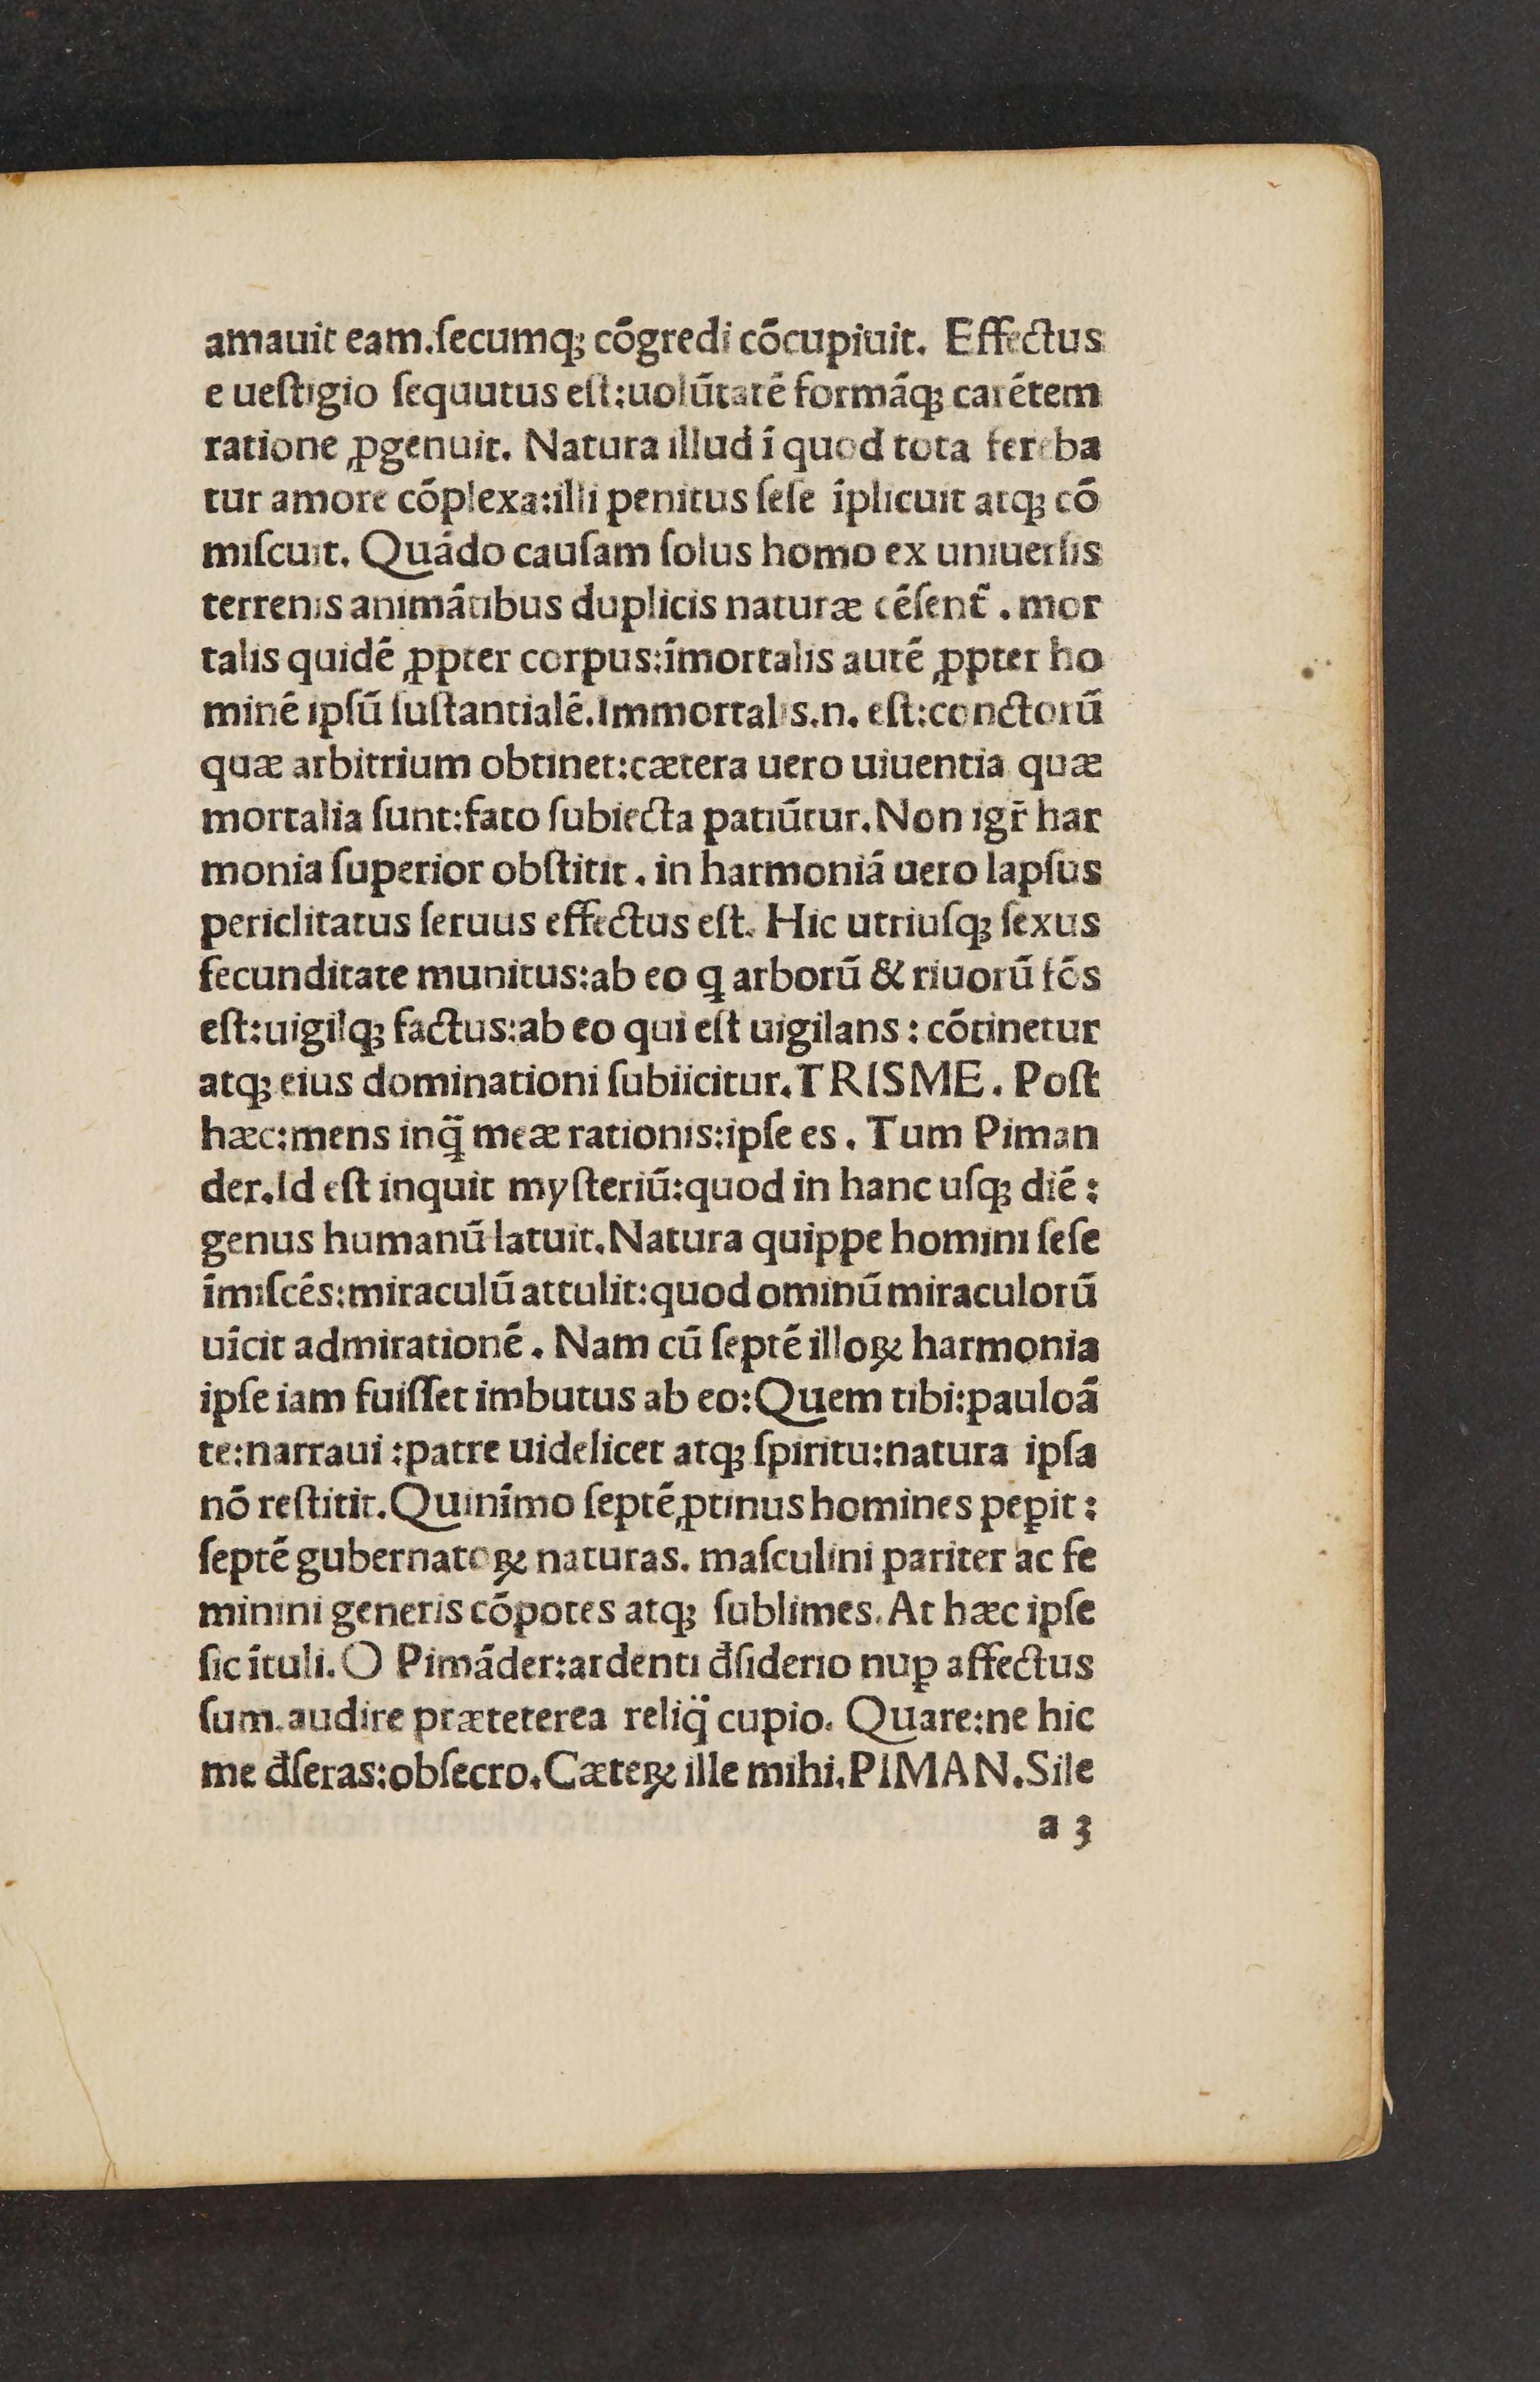 amauit eam.ſecumq; cōgredi cōcupiuit. Effectus
e ueſtigio ſequutus eſt:uolūtatē formāq; carētem
ratione ꝓgenuit. Natura illud ī quod tota fereba
tur amore cōplexa:illi penitus ſeſe īplicuit atq; cō
miſcuit. Quādo cauſam ſolus homo ex uniuerſis
terrenis animātibus duplicis naturæ cēſent̄ . mor
talis quidē ꝓpter corpus:īmortalis autē ꝓpter ho
minē ipſū ſuſtantialē.Immortalis.n. eſt:conctorū
quæ arbitrium obtinet:cætera uero uiuentia quæ
mortalia ſunt:fato ſubiecta patiūtur.Non igr̄ har
monia ſuperior obſtitit . in harmoniā uero lapſus
periclitatus ſeruus effectus eſt. Hic utriuſq; ſexus
fecunditate munitus:ab eo q arborū & riuorū fōs
eſt:uigilq; factus:ab eo qui eſt uigilans : cōtinetur
atq; eius dominationi ſubiicitur.TRISME. Poſt
hæc:mens inq̈ meæ rationis:ipſe es . Tum Piman
der.Id eſt inquit myſteriū:quod in hanc uſq; diē :
genus humanū latuit.Natura quippe homini ſeſe
īmiſcēs:miraculū attulit:quod ominū miraculorū
uīcit admirationē . Nam cū ſeptē illoꝝ harmonia
ipſe iam fuiſſet imbutus ab eo:Quem tibi:pauloā
te:narraui :patre uidelicet atq; ſpiritu:natura ipſa
nō reſtitit.Quinīmo ſeptē ꝓtinus homines peꝑit :
ſeptē gubernatoꝝ naturas. maſculini pariter ac fe
minini generis cōpotes atq; ſublimes. At hæc ipſe
ſic ītuli. O Pimāder:ardenti đſiderio nuꝑ affectus
ſum.audire præteterea reliq̈ cupio. Quare:ne hic
me đſeras:obſecro.Cæteꝝ ille mihi.PIMAN.Sile
a 3